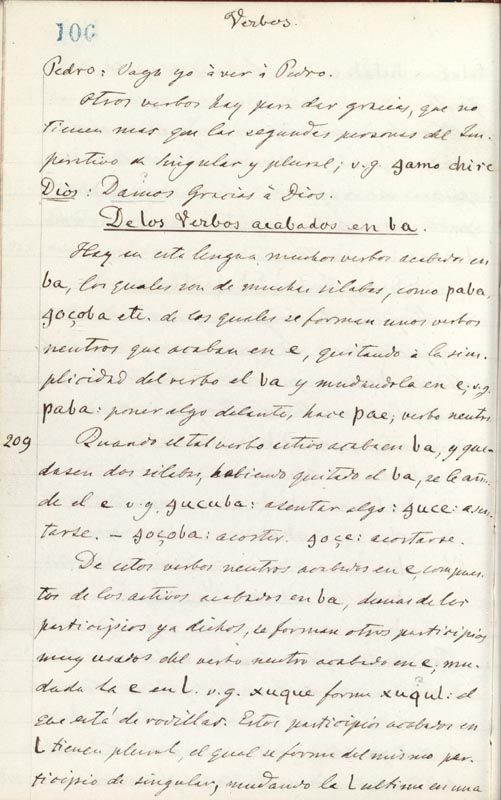 106
Verbos.
Pedro: Vagh yo à ver à Pedro.
Otros verbos hay para dar gracias, que no
tienen mas que las segundas personas del Im-
perativo de Singular y plural; v.g. gamo chire
Dios: Damos Gracias à Dios.
De los Verbos acabados en ba.
Hay en esta lengua muchos verbos acabados en
ba, los quales son de muchas silabas, como paba,
goçoba etc. de los quales se forman unos verbos
neutros que acaban en e, quitando à la sim-
plicidad del verbo el ba y mudandola en e; v.g.
paba: poner algo delante, hace pae; verbo neutro
209 Quando el tal verbo activo acaba en ba, y que-
dasen dos silabas, habiendo quitado el ba, se le aña-
de el e v.g. gucuba: asentar algo: guce: asen-
tarse. — goçoba: acostar. goçe: acostarse.
De estos verbos neutros acabados en e, compues-
tos de los activos acabados en ba, demas de los
participios ya dichos, se forman otros participios
muy usados del verbo neutro acabado en e, mu-
dada la e en l. v.g. xuque forma xuqul: el
que está de rodillas. Estos participios acabados en
l tienen plural, el qual se forma del mismo par-
ticipio de singular, mudando la l ultima en una